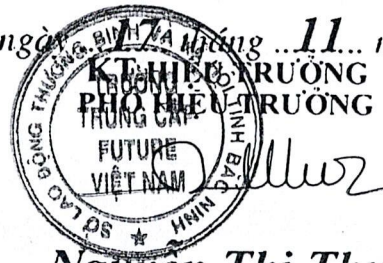 ngày ..17.. tháng ..11..
KT.HIỆU TRƯỞNG
PHÓ HIỆU TRƯỞNG
SỞ LAO ĐỘNG THƯƠNG BINH VÀ XÃ HỘI TỈNH BẮC NINH
TRƯỜNG
TRUNG CẤP
FUTURE
VIỆT NAM
Nguyễn Thị